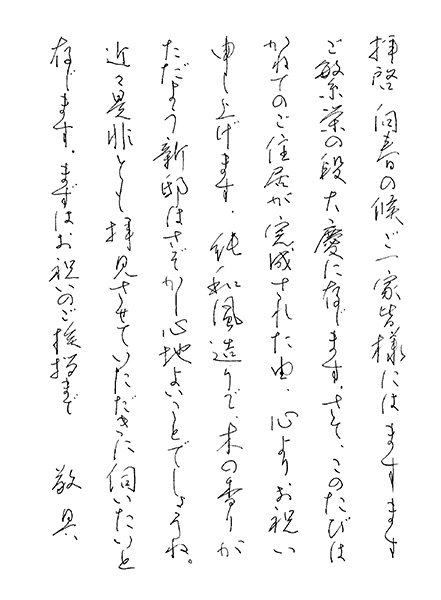 拝啓 向春の候 ご一家皆様にはますます
ご繁栄の段 大慶に存じます。さて、このたびは
かねてのご住居が完成された由、心よりお祝い
申し上げます。純和風造りで、木の香りが
ただよう新邸はさぞかし心地よいことでしょうね。
近々是非とも拝見させていただきに伺いたいと
存じます。まずはお祝いのご挨拶まで
敬具